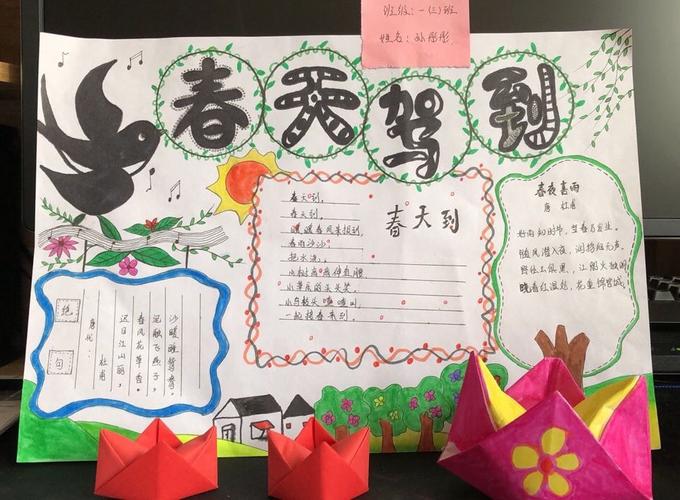 班级:一(三)班
姓名:孙彤彤
春天驾到
春天到
春天到,
春天到,
暖暖春风来报到
春雨沙沙
把水浇,
小树伸直腰
小草乐的笑,
小鸟枝头喳喳叫,
一起接春来到。
春夜喜雨
唐 杜甫
好雨知时节,当春乃发生。
随风潜入夜,润物细无声。
野径云俱黑,江船火独明。
晓看红湿处,花重锦官城。
绝句
唐代:杜甫
迟日江山丽,
春风花草香。
泥融飞燕子,
沙暖睡鸳鸯。